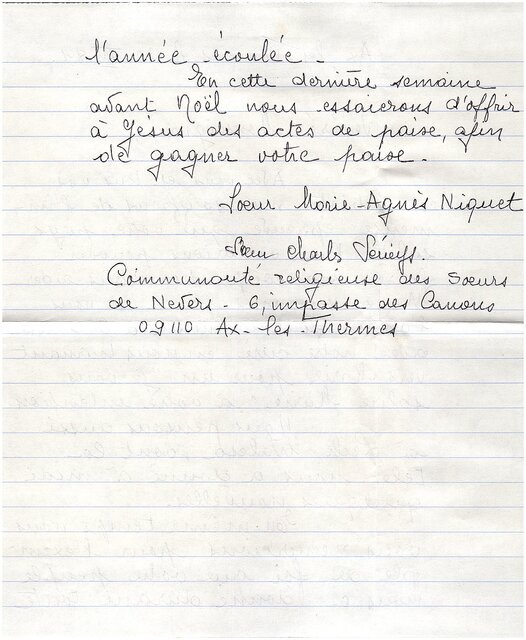 l'année écoulée.
En cette dernière semaine
avant Noël nous essaierons d'offrir
à Jésus des actes de paix, afin
de gagner votre paix.
Soeur Marie-Agnès Niquet
Soeur Charles
Communauté religieuse des Soeurs
de Nevers - 6, impasse des Canons
09110 Ax-les-Thermes